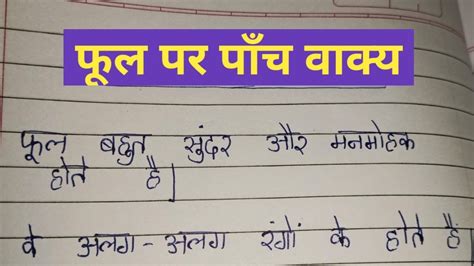 फूल पर पाँच वाक्य
फूल बहुत सुंदर और मनमोहक
होते है।
वे अलग-अलग रंगों के होते हैं